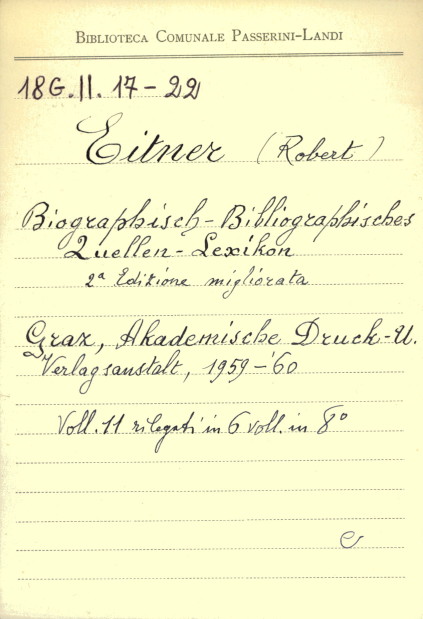 BIBLIOTECA COMUNALE PASSERINI-LANDI
18G.II.17-22
Eitner (Robert)
Biographisch-Bibliographisches
Quellen-Lexikon
2ª Edizione migliorata
Graz, Akademische Druck-U.
Verlagsanstalt, 1959-'60
Voll. 11 rilegati in 6 voll. in 8°
e